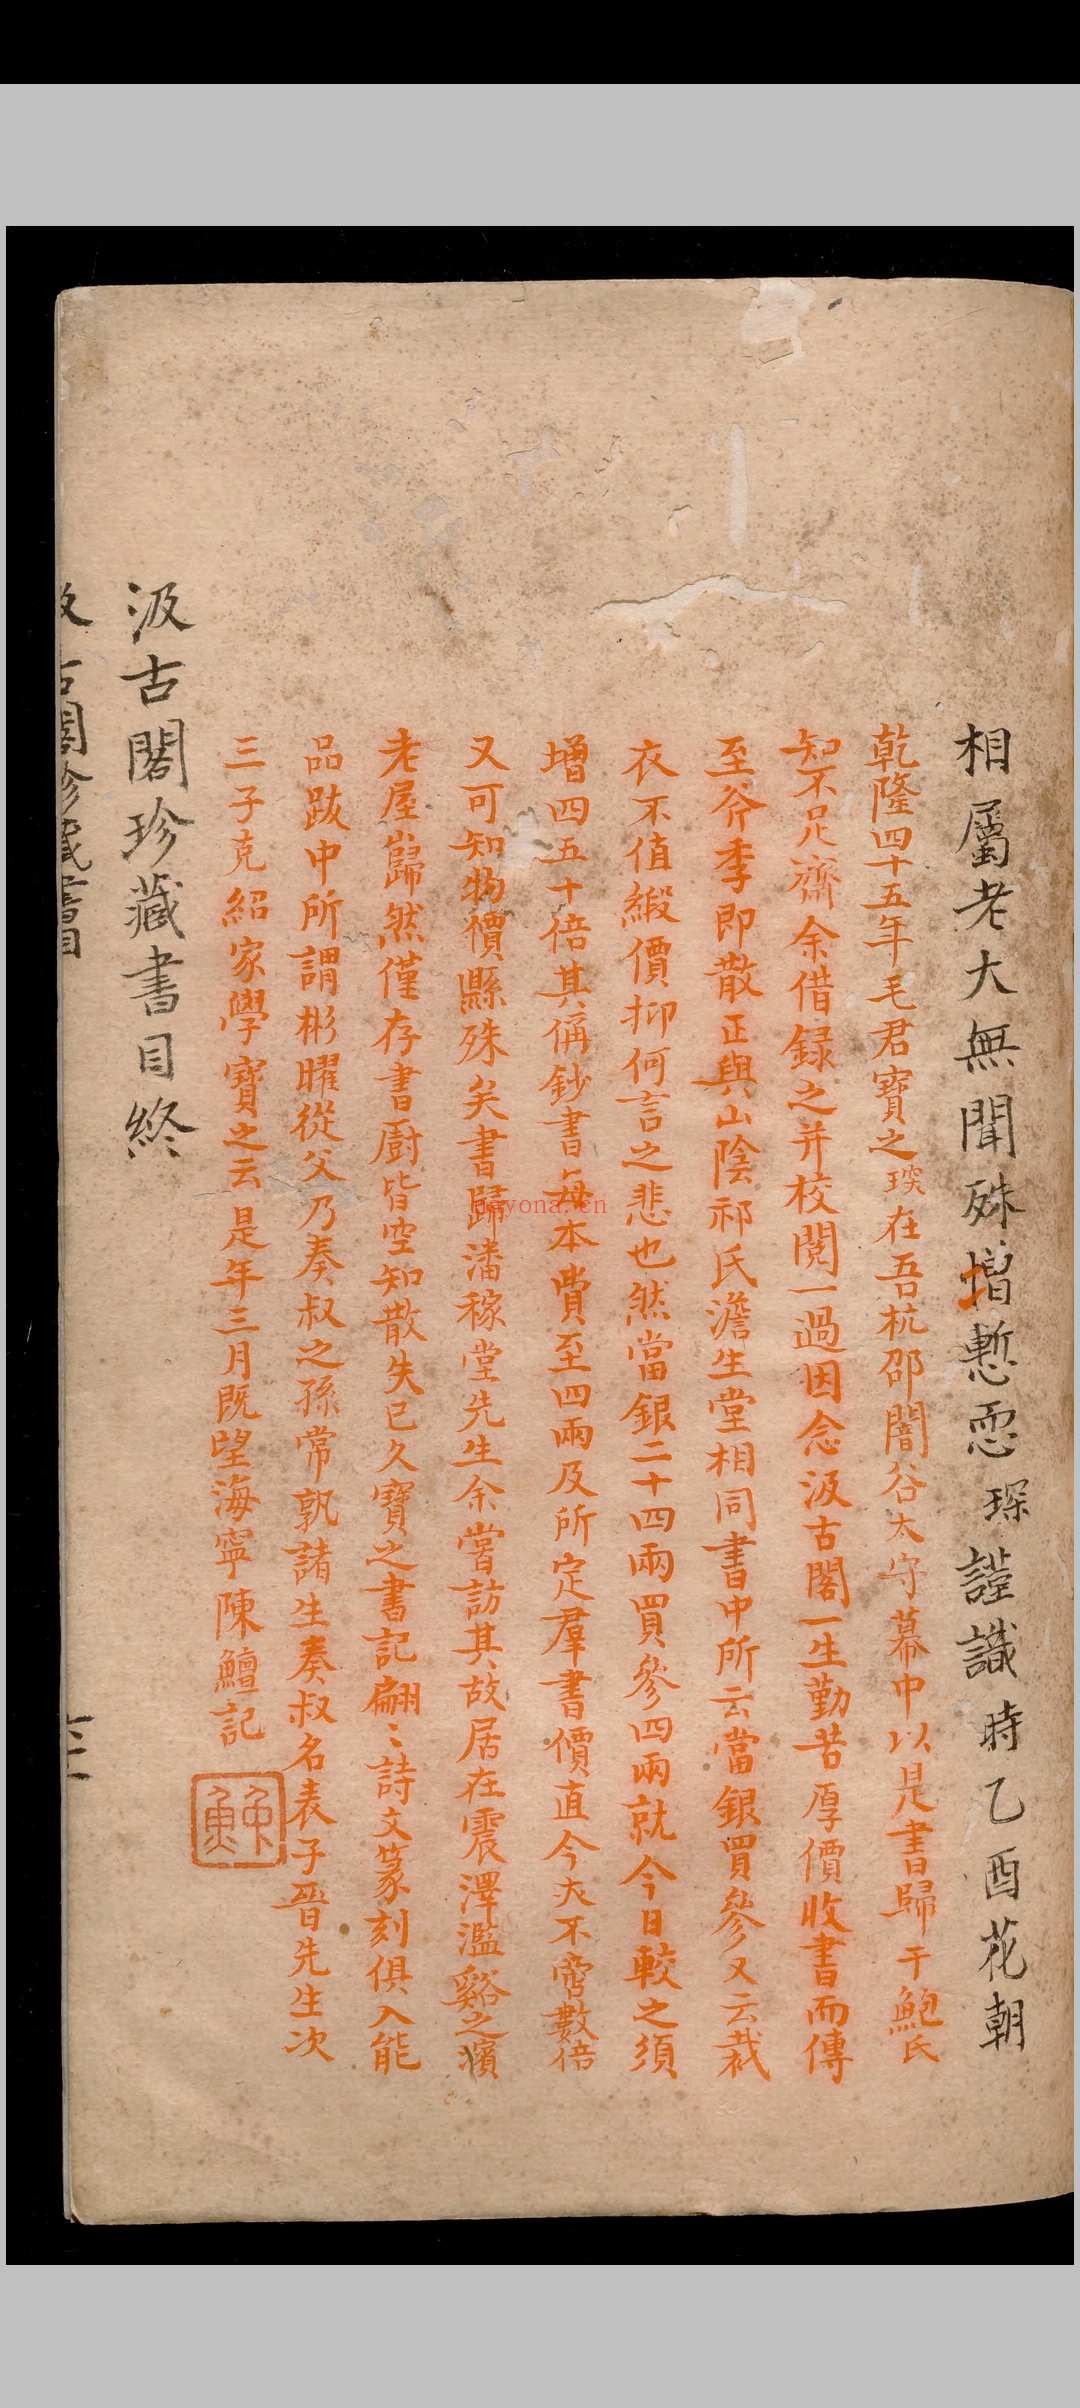 相屬老大無聞殊增慙恧琛謹識時乙酉花朝
乾隆四十五年毛君寶之琛在吾杭邵闇谷太守幕中以是書歸于鮑氏
知不足齋余借録之并校閲一過因念汲古閣一生勤苦厚價收書而傳
至斧季即散正與山陰祁氏澹生堂相同書中所云當銀買參又云裁
衣不值緞價抑何言之悲也然當銀二十四兩買參四兩就今日較之須
增四五十倍其偁鈔書每本費至四兩及所定羣書價直今亦不啻數倍
又可知物價縣殊矣書歸潘稼堂先生余嘗訪其故居在震澤濫谿之濱
老屋巋然僅存書厨皆空知散失已久寶之書記翩〻詩文篆刻俱入能
品跋中所謂彬曜從父乃奏叔之孫常孰諸生奏叔名表子晉先生次
三子克紹家學寶之云是年三月既望海寧陳鱣記
汲古閣珍藏書目終
古閣珍藏書目
nayona.cn